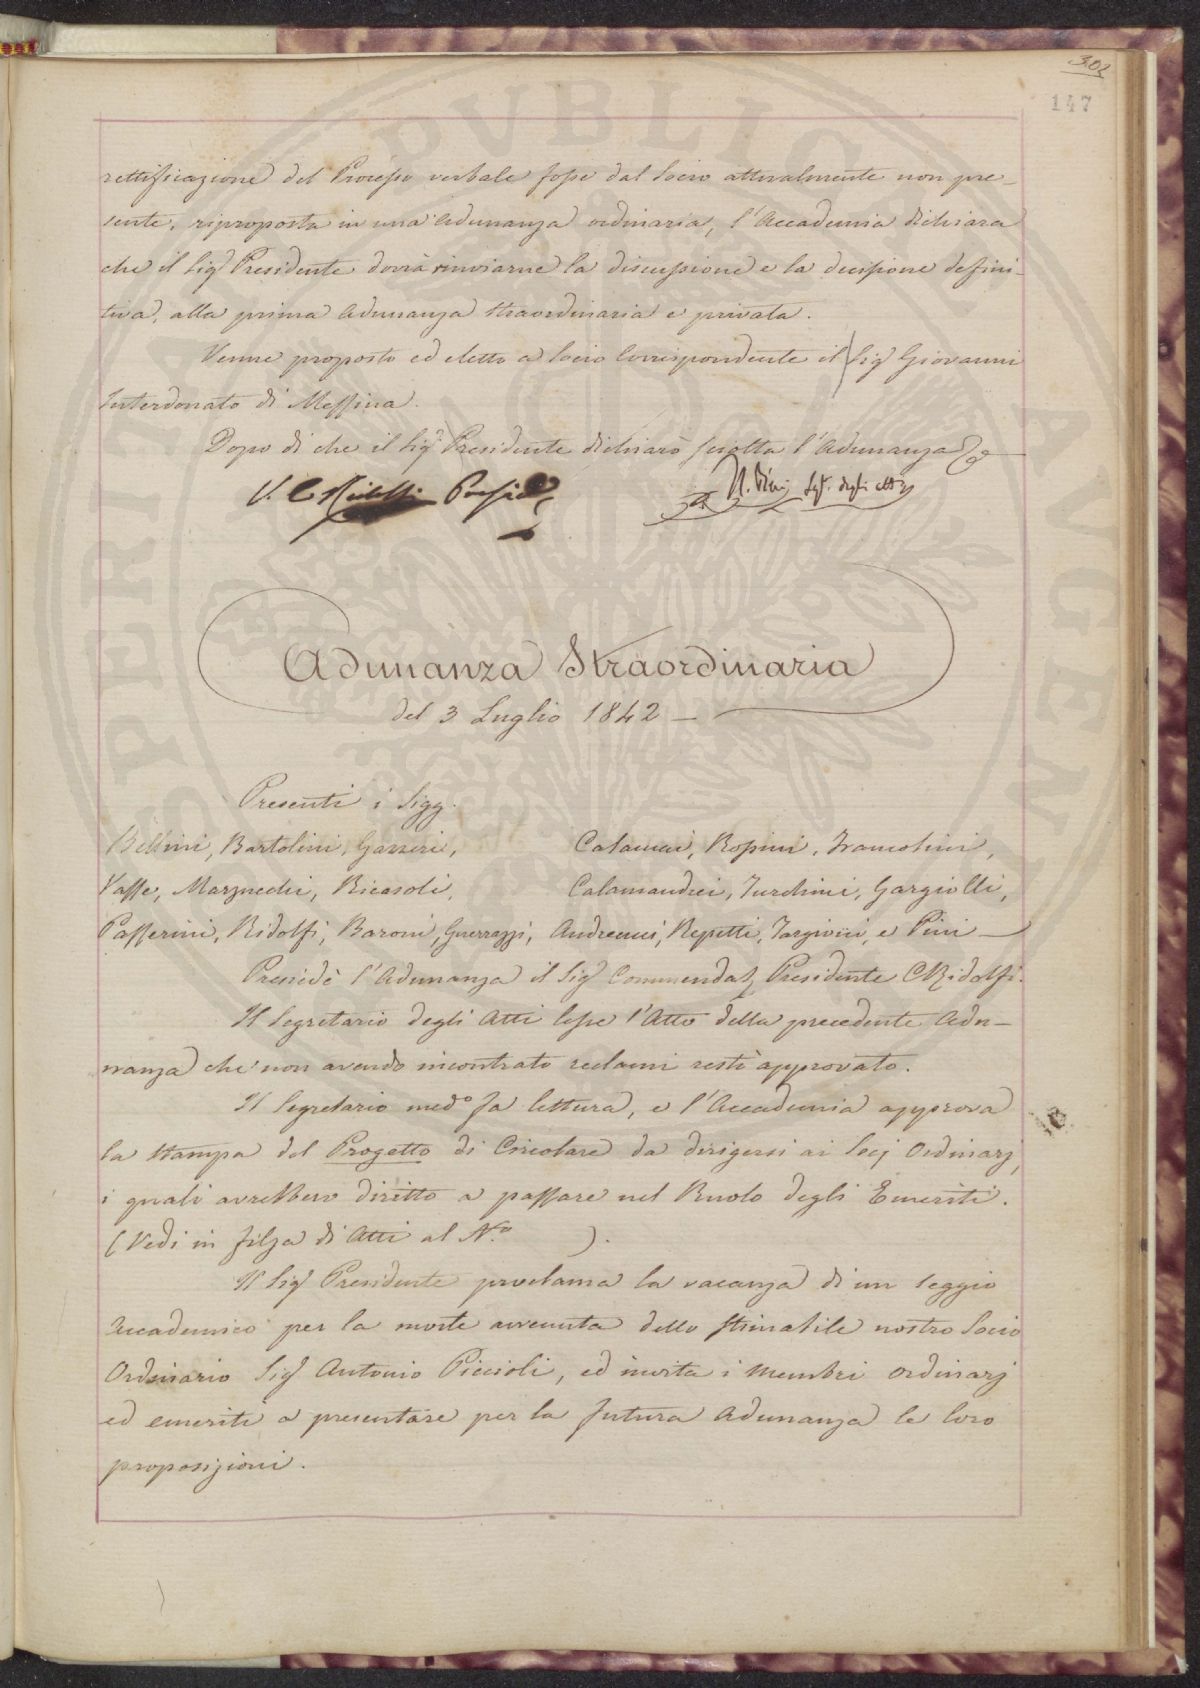 302
147
rettificazione del Processo verbale fosse dal Socio attualmente non pre-
sente, riproposta in una Adunanza ordinaria, l'Accademia dichiara
che il Sig.r Presidente dovrà rinviarne la discussione e la decisione defini-
tiva, alla prima Adunanza straordinaria e privata.
Venne proposto ed eletto a Socio Corrispondente il Sig.r Giovanni
Interdonato di Messina.
Dopo di che il Sig.r Presidente dichiarò sciolta l'Adunanza
V. C. Ridolfi Presid
Pini Seg. degli Atti
Adunanza Straordinaria
del 3 Luglio 1842 —
Presenti i Sigg.
Bellini, Bartolini, Gazzeri, Calamai, Rossini, Francolini,
Taffe, Marzucchi, Ricasoli, Calamandrei, Turchini, Gargiolli,
Passerini, Ridolfi, Baroni, Guerrazzi, Andreucci, Repetti, Targioni, e Pini —
Presiedè l'Adunanza il Sig.r Commendat.r Presidente C. Ridolfi.
Il Segretario degli Atti lesse l'Atto della precedente Adu-
nanza che non avendo incontrato reclami restò approvato.
Il Segretario med.o fa lettura, e l'Accademia approva
la stampa del Progetto di Circolare da dirigersi ai Socj Ordinarj,
i quali avrebbero diritto a passare nel Ruolo degli Emeriti.
(Vedi in filza di Atti al N.o ).
Il Sig.r Presidente proclama la vacanza di un seggio
Accademico per la morte avvenuta dello stimabile nostro Socio
Ordinario Sig.r Antonio Piccioli, ed invita i Membri Ordinarj
ed emeriti a presentare per la futura Adunanza le loro
proposizioni.